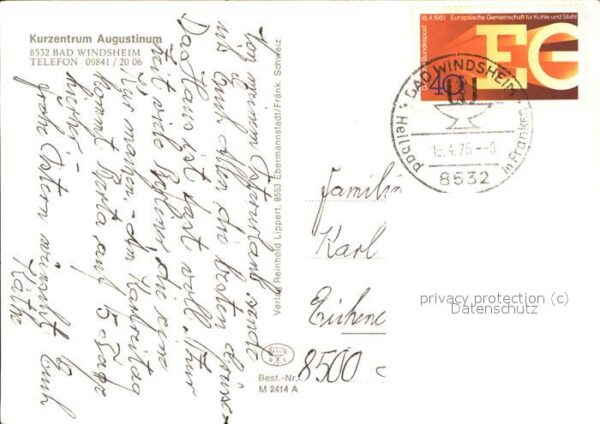 Kurzentrum Augustinum
8532 BAD WINDSHEIM
TELEFON 09841 / 20 06
Von meinem Osterurlaub sende
ich Euch allen die besten Grüsse.
Das Haus ist fast voll. Nur
viele die eine
Kur machen. - Am Karfreitag
kommt Berta auf 5 Tage
hierher. -
Frohe Ostern wünscht Euch
Käthe
Verlag Reinhold Lippert, 8553 Ebermannstadt/Fränk. Schweiz
Best.-Nr.
M 2414 A
18.4.1951 Europäische Gemeinschaft für Kohle und Stahl
Deutsche Bundespost
EG
40
BAD WINDSHEIM
Heilbad in Franken
15.4.76--8
8532
Familie
Karl
8500
privacy protection (c)
Datenschutz